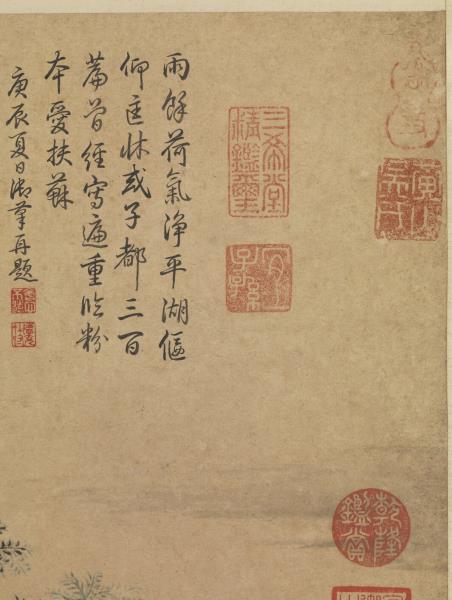 雨餘荷氣淨平湖偃
仰匡牀或子都三百
篇曾經寫遍重臨粉
本愛扶蘇
庚辰夏日御筆再題
三希堂精鑑璽
宜子孫
乾隆鑑賞